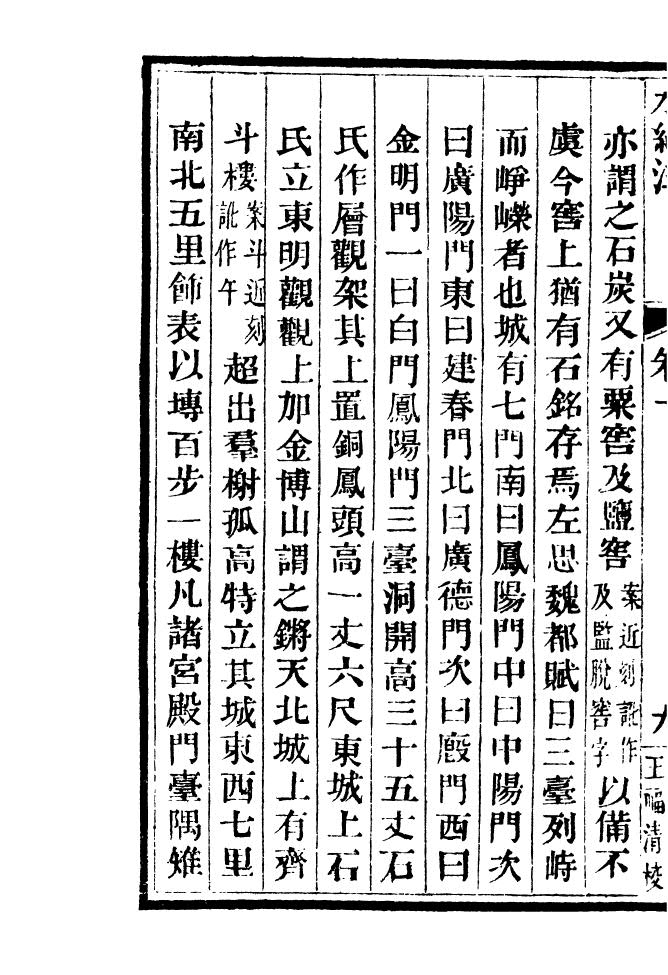 水經注
卷十
九
王福清校
亦謂之石炭又有粟窖及鹽窖案近刻訛作及監脫窖字以備不
虞今窖上猶有石銘存焉左思魏都賦曰三臺列峙
而崢嶸者也城有七門南曰鳳陽門中曰中陽門次
曰廣陽門東曰建春門北曰廣德門次曰廏門西曰
金明門一曰白門鳳陽門三臺洞開高三十五丈石
氏作層觀架其上置銅鳳頭高一丈六尺東城上石
氏立東明觀觀上加金博山謂之鏘天北城上有齊
斗樓案斗近刻訛作午超出羣榭孤高特立其城東西七里
南北五里飾表以塼百步一樓凡諸宮殿門臺隅雉